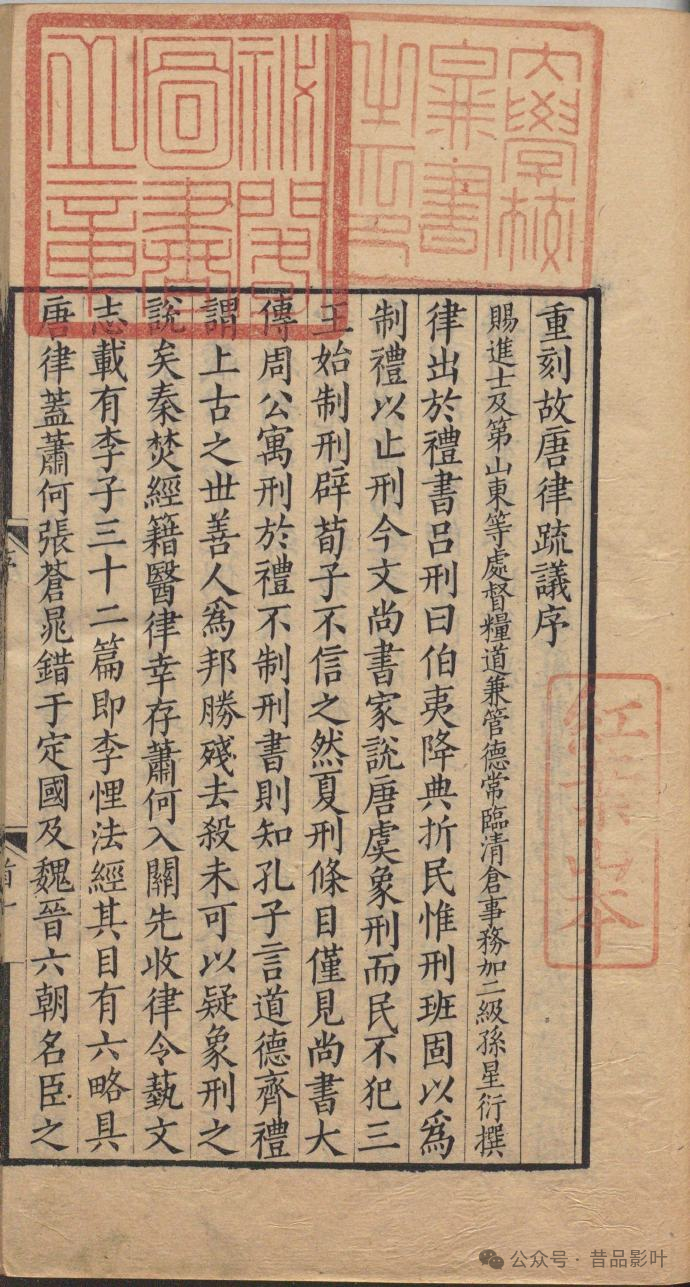 重刻故唐律疏議序
賜進士及第山東等處督糧道兼管德常臨清倉事務加二級孫星衍撰
律出於禮書呂刑曰伯夷降典折民惟刑班固以爲
制禮以止刑今文尚書家說唐虞象刑而民不犯三
王始制刑辟荀子不信之然夏刑條目僅見尚書大
傳周公寓刑於禮不制刑書則知孔子言道德齊禮
謂上古之世善人爲邦勝殘去殺未可以疑象刑之
說矣秦焚經籍醫律幸存蕭何入關先收律令藝文
志載有李子三十二篇即李悝法經其目有六略具
唐律蓋蕭何張蒼晁錯于定國及魏晉六朝名臣之
大學校
藁書
之印
祕閣
圖書
之章
紅葉山本
序
公众号·昔品影叶